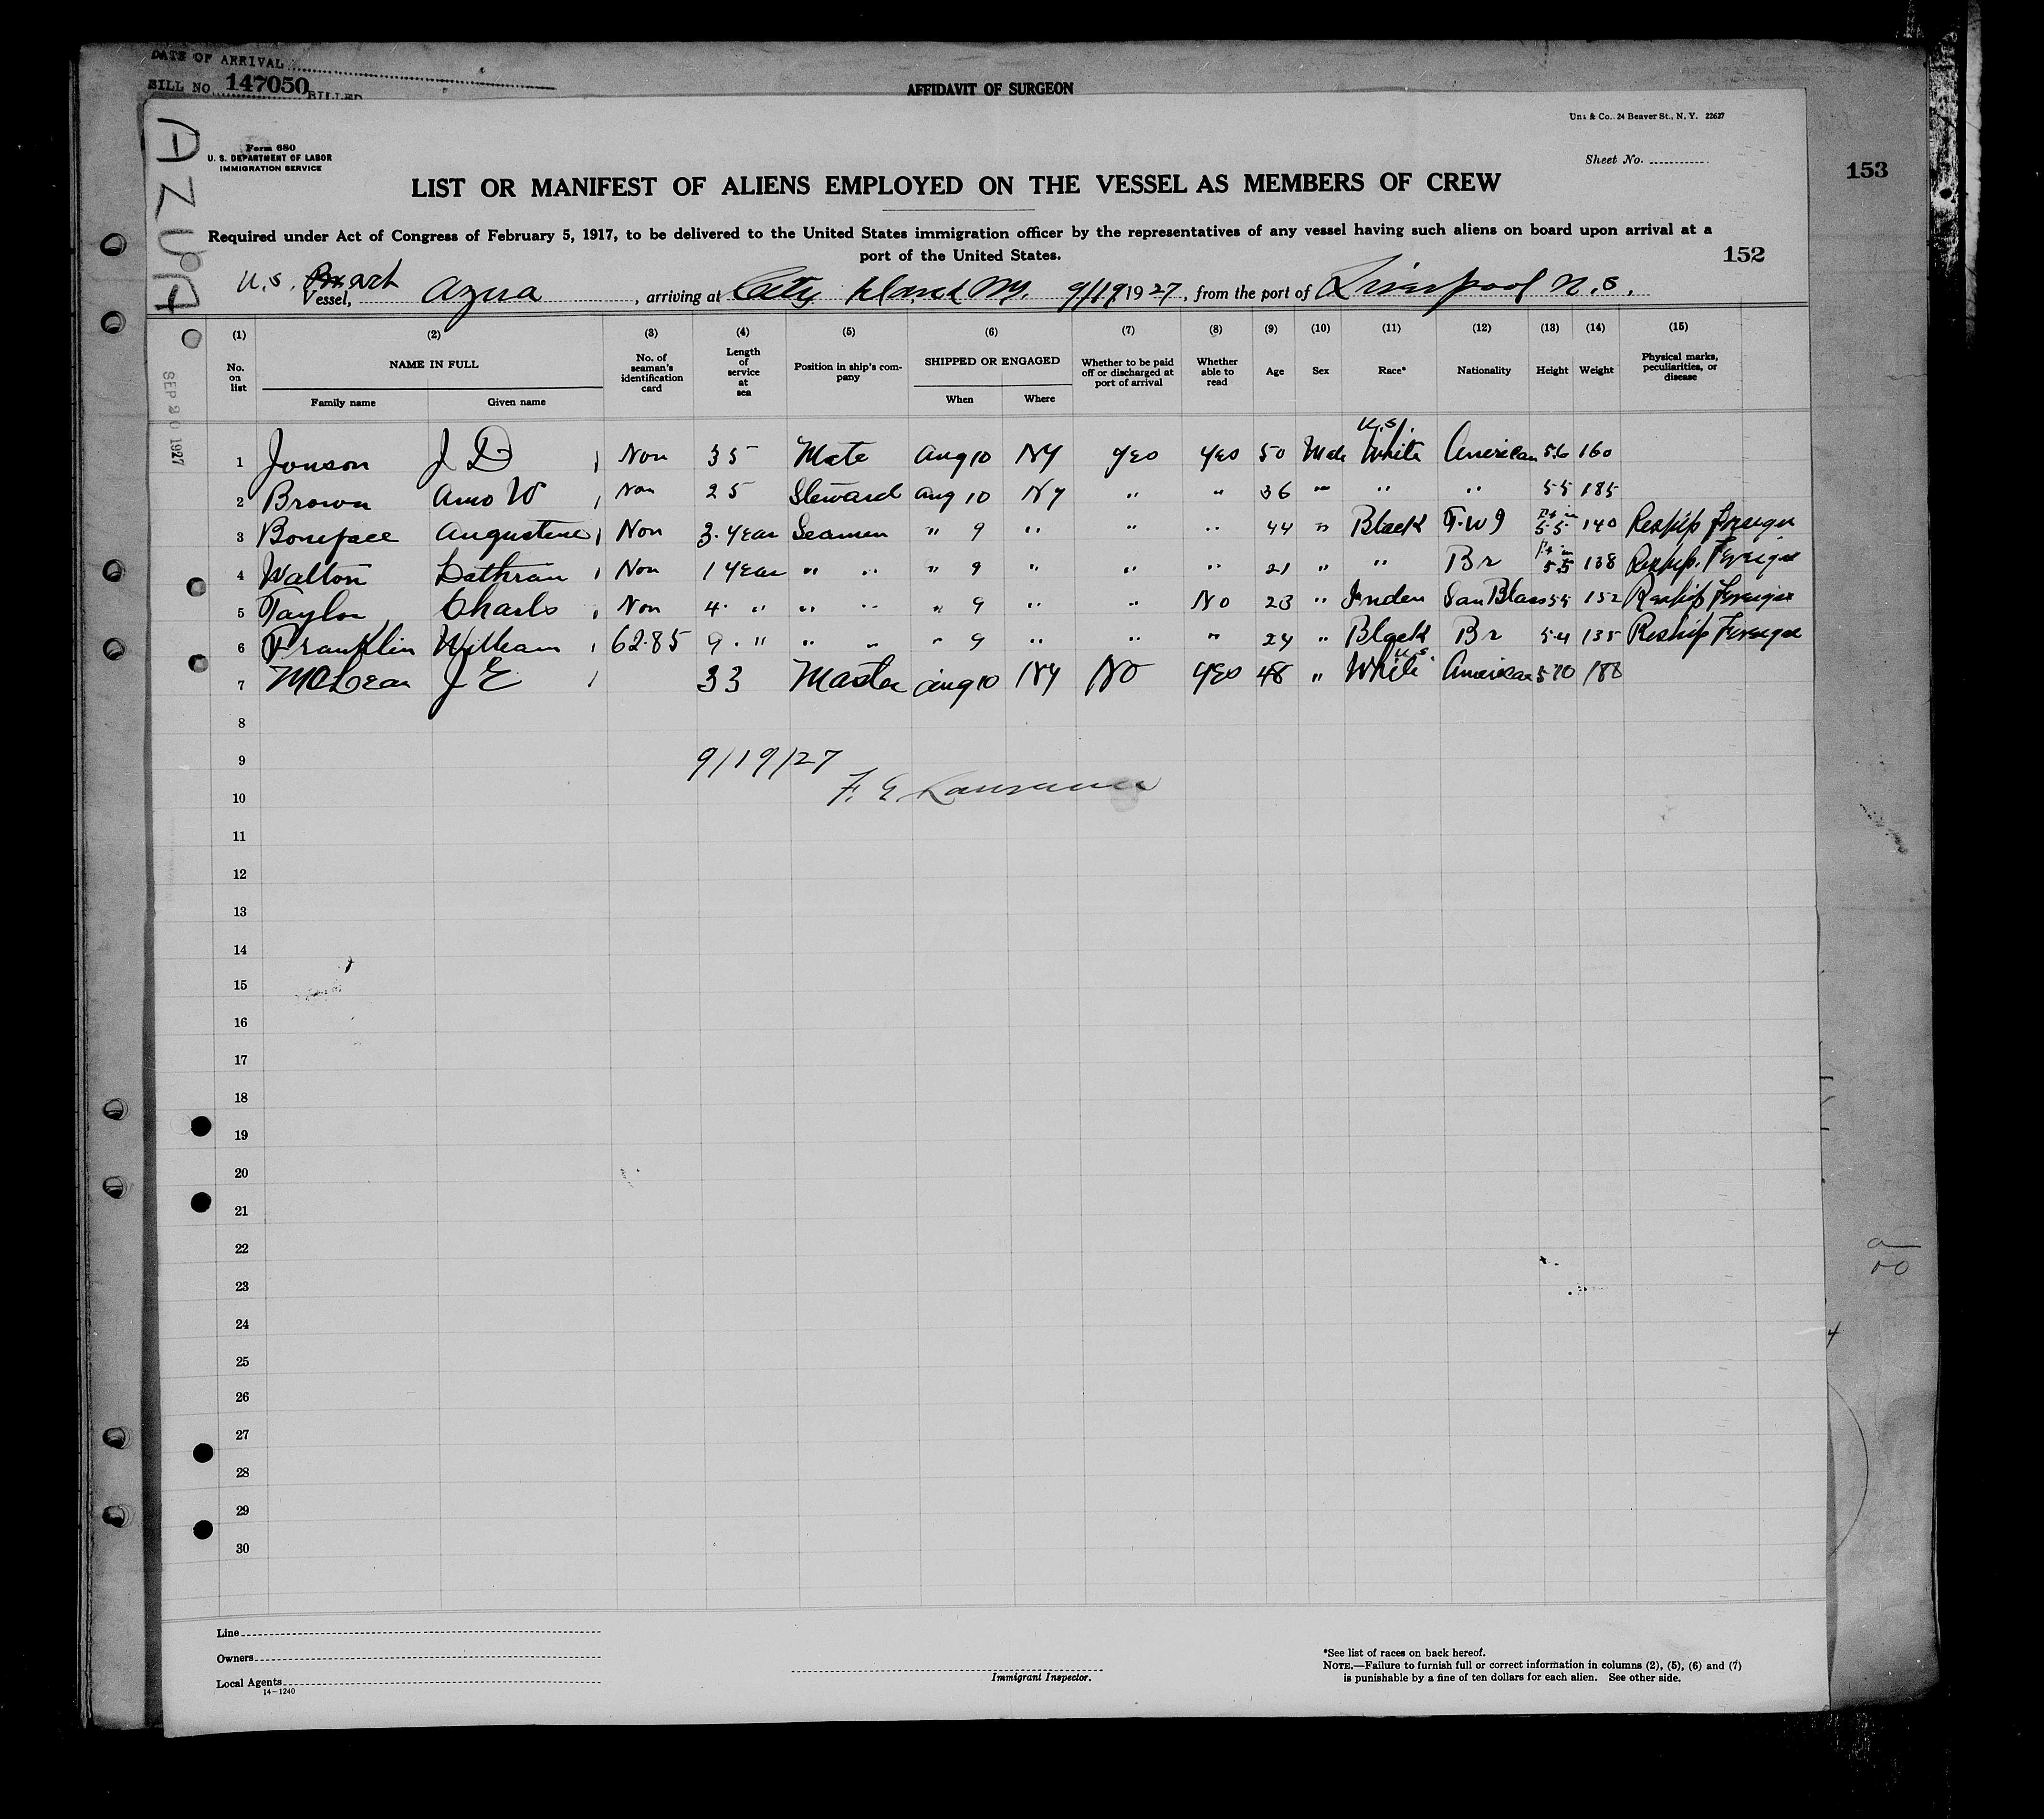 DATE OF ARRIVAL
BILL NO. 147050 BILLED
AFFIDAVIT OF SURGEON
AZUA
& Co., 24 Beaver St., N. Y. 22627
Form 680
U. S. DEPARTMENT OF LABOR
IMMIGRATION SERVICE
Sheet No.
153
LIST OR MANIFEST OF ALIENS EMPLOYED ON THE VESSEL AS MEMBERS OF CREW
Required under Act of Congress of February 5, 1917, to be delivered to the United States immigration officer by the representatives of any vessel having such aliens on board upon arrival at a
port of the United States.
152
U.S. Vessel, Azua, arriving at City Island NY. 9/19 1927, from the port of Liverpool N.S.
SEP 20 1927
(1) (2) (3) (4) (5) (6) (7) (8) (9) (10) (11) (12) (13) (14) (15)
No. on list NAME IN FULL Family name Given name No. of seaman's identification card Length of service at sea Position in ship's company SHIPPED OR ENGAGED When Where Whether to be paid off or discharged at port of arrival Whether able to read Age Sex Race* Nationality Height Weight Physical marks, peculiarities, or disease
U.S.
1 Jonson J D Non 35 Mate Aug 10 NY Yes Yes 50 Male White American 5.6 160
2 Brown Amo W Non 25 Steward Aug 10 NY " " 36 " " " 5 5 185
3 Boneface Augustene Non 3. Year Seamen " 9 " " " 44 " Black F.W I 5.5 140 Reship Foreign
4 Walton Non 1 Year " " " 9 " " " 21 " " Br 5.5 138 Reship Foreign
5 Taylor Charls Non 4. " " " " 9 " " No 23 " Inden San Blass 5 5 152 Reship Foreign
6 Franklin William 62.85 9. " " " " 9 " " " 24 " Black Br 5.4 135 Reship Foreign
U.S.
7 McLean J E 33 Master Aug 10 NY No Yes 48 " White American 5 10 188
8
9
9/19/27
10
F. E.
11
12
13
14
15
16
17
18
19
20
21
22
23
24
25
26
27
28
29
30
Line
Owners
Local Agents
14-1240
Immigrant Inspector.
*See list of races on back hereof.
NOTE.—Failure to furnish full or correct information in columns (2), (5), (6) and (7)
is punishable by a fine of ten dollars for each alien. See other side.